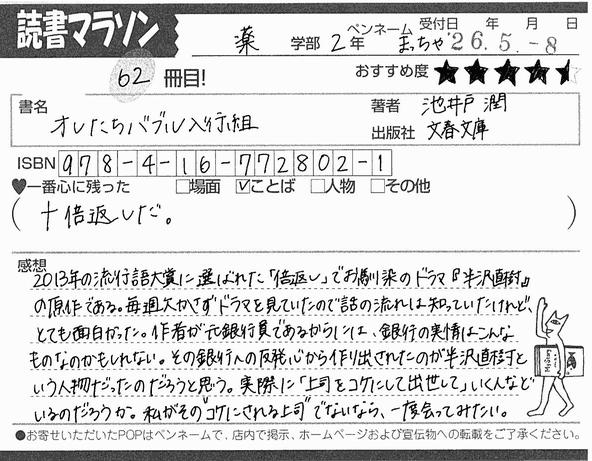 読書マラソン
薬 学部 2年 ペンネーム まっちゃ 受付日 年 月 日 '26.5.-8
62 冊目! おすすめ度 ★★★★
書名 オレたちバブル入行組
著者 池井戸 潤
出版社 文春文庫
ISBN 978-4-16-772802-1
♥一番心に残った □場面 ☑ことば □人物 □その他
(十倍返しだ。)
感想
2013年の流行語大賞に選ばれた「倍返し」でお馴染のドラマ『半沢直樹』
の原作である。毎週欠かさずドラマを見ていたので話の流れは知っていたけれど、
とても面白かった。作者が元銀行員であるからには、銀行の実情はこんな
ものなのかもしれない。その銀行への反発心から作り出されたのが半沢直樹と
いう人物だったのだろうと思う。実際に「上司をコケにして出世して」いく人など
いるのだろうか。私がその"コケにされる上司"でないなら、一度会ってみたい。
●お寄せいただいたPOPはペンネームで、店内で掲示、ホームページおよび宣伝物への転載をご了承ください。